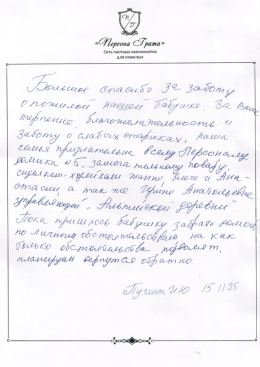 П Г
«Персона Грата»
Сеть частных пансионатов
для пожилых
Большое спасибо за заботу
о пожилой нашей бабушке за Ваше
терпение, благожелательность и
заботу о слабых стариках. Наша
семья признательна всему Персоналу
домика №5, замечательному повару,
сиделкам-хозяйкам и Ана-
стасии, а так же Анатольевне
управляющей "Альпийской деревни"
Пока пришлось бабушку забрать домой
по личным обстоятельствам но как
только обстоятельства позволят,
планируем вернуться обратно.
15.11.25